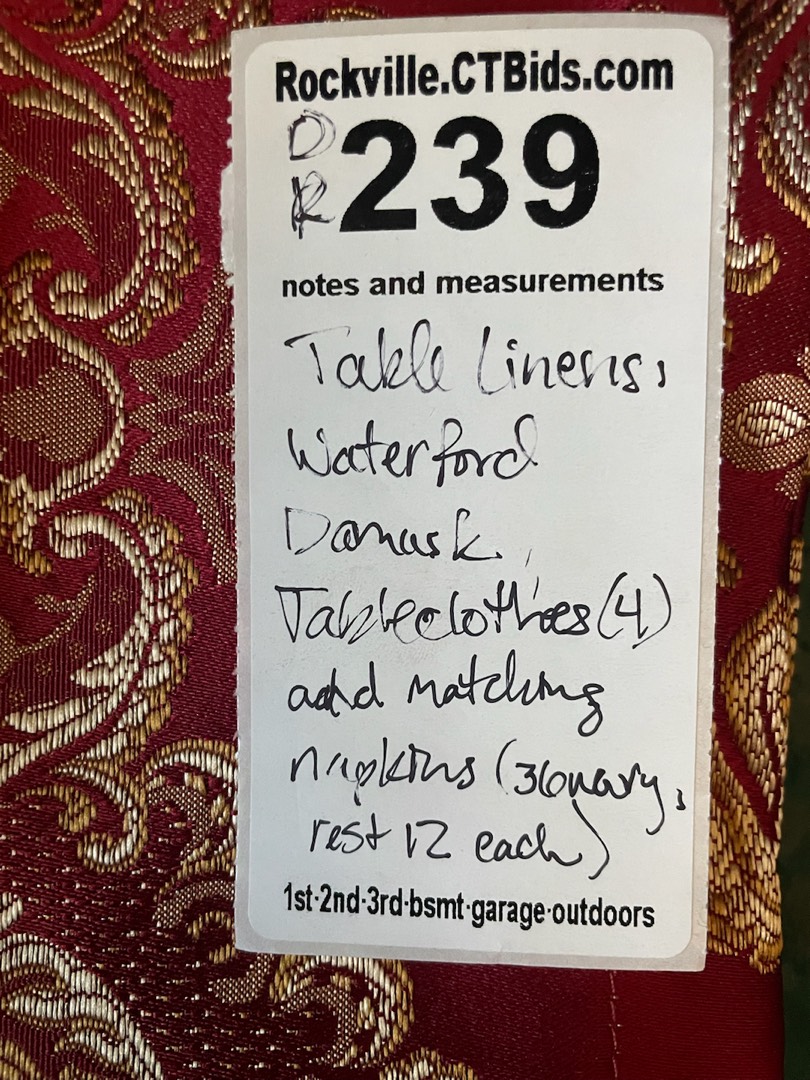 Rockville.CTBids.com
DR 239
notes and measurements
Table Linens,
Waterford
Damask
Tableclothes (4)
and matching
napkins (36 navy,
rest 12 each)
1st·2nd·3rd·bsmt·garage·outdoors